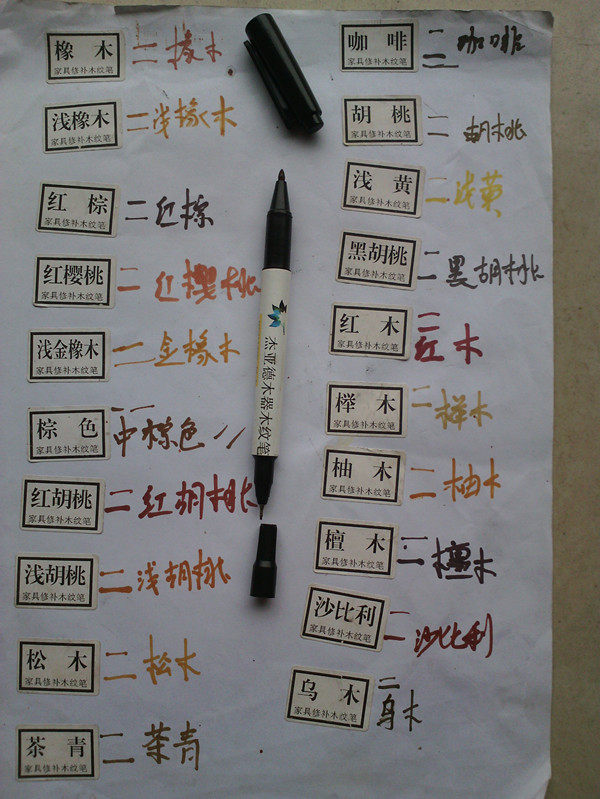 橡 木
家具修补木纹笔
= 橡木
浅橡木
家具修补木纹笔
= 浅橡木
红 棕
家具修补木纹笔
= 红棕
红樱桃
家具修补木纹笔
= 红樱桃
浅金橡木
家具修补木纹笔
= 金橡木
棕 色
家具修补木纹笔
= 中棕色 //
红胡桃
家具修补木纹笔
= 红胡桃
浅胡桃
家具修补木纹笔
= 浅胡桃
松 木
家具修补木纹笔
= 松木
茶 青
家具修补木纹笔
= 茶青
杰亚德木器木纹笔
咖 啡
家具修补木纹笔
= 咖啡
胡 桃
家具修补木纹笔
= 胡桃
浅 黄
家具修补木纹笔
= 浅黄
黑胡桃
家具修补木纹笔
= 黑胡桃
红 木
家具修补木纹笔
= 红木
榉 木
家具修补木纹笔
= 榉木
柚 木
家具修补木纹笔
= 柚木
檀 木
家具修补木纹笔
= 檀木
沙比利
家具修补木纹笔
= 沙比利
乌 木
家具修补木纹笔
= 乌木